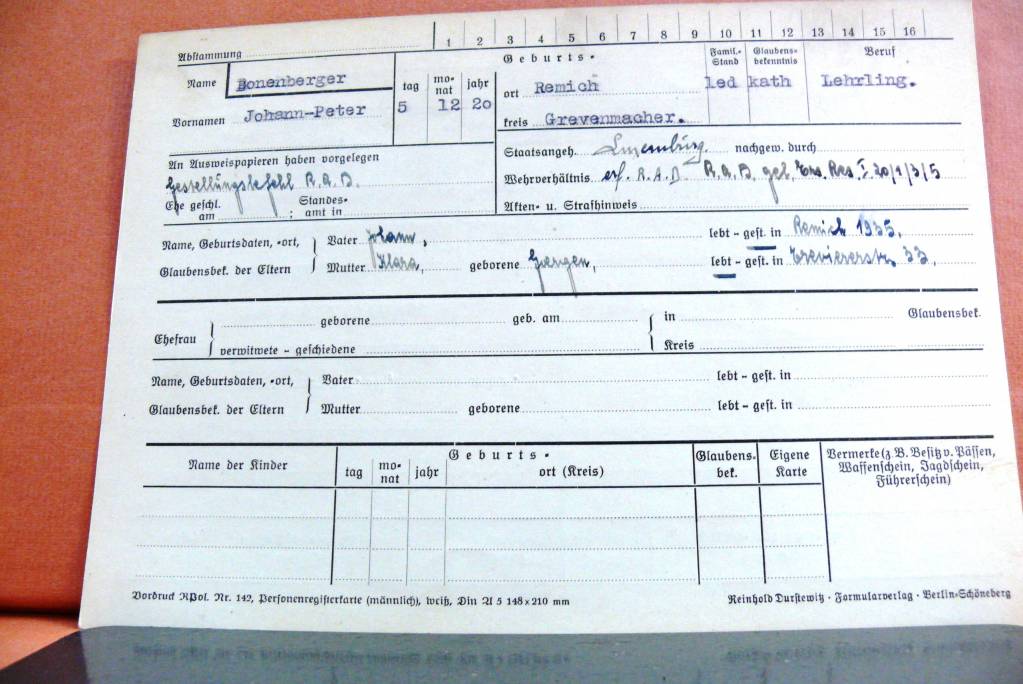 1 2 3 4 5 6 7 8 9 10 11 12 13 14 15 16
Abstammung
Name Bonenberger
Vornamen Johann-Peter
Geburts-
tag monat jahr
5 12 20
ort Remich
kreis Grevenmacher.
Famil.-Stand
led
Glaubens-bekenntnis
kath
Beruf
Lehrling.
An Ausweispapieren haben vorgelegen
Gestellungsbefehl R.A.D.
Ehe geschl. am ; Standes-amt in
Staatsangeh. Luxemburg. nachgew. durch
Wehrverhältnis erf. R.A.D. R.A.D. gel. Ers. Res. I. 20/1/3/5
Akten- u. Strafhinweis
Name, Geburtsdaten, -ort, Glaubensbek. der Eltern
Vater Johann, lebt - gest. in Remich 1935.
Mutter Klara, geborene lebt - gest. in 33.
Ehefrau
geborene geb. am in Glaubensbek.
verwitwete - geschiedene Kreis
Name, Geburtsdaten, -ort, Glaubensbek. der Eltern
Vater lebt - gest. in
Mutter geborene lebt - gest. in
Name der Kinder
Geburts-
tag monat jahr ort (Kreis)
Glaubens-bek.
Eigene Karte
Vermerke (z. B. Besitz v. Pässen,
Waffenschein, Jagdschein,
Führerschein)
Vordruck RPol. Nr. 142, Personenregisterkarte (männlich), weiß, Din A 5 148 x 210 mm
Reinhold Durstewitz · Formularverlag · Berlin-Schöneberg